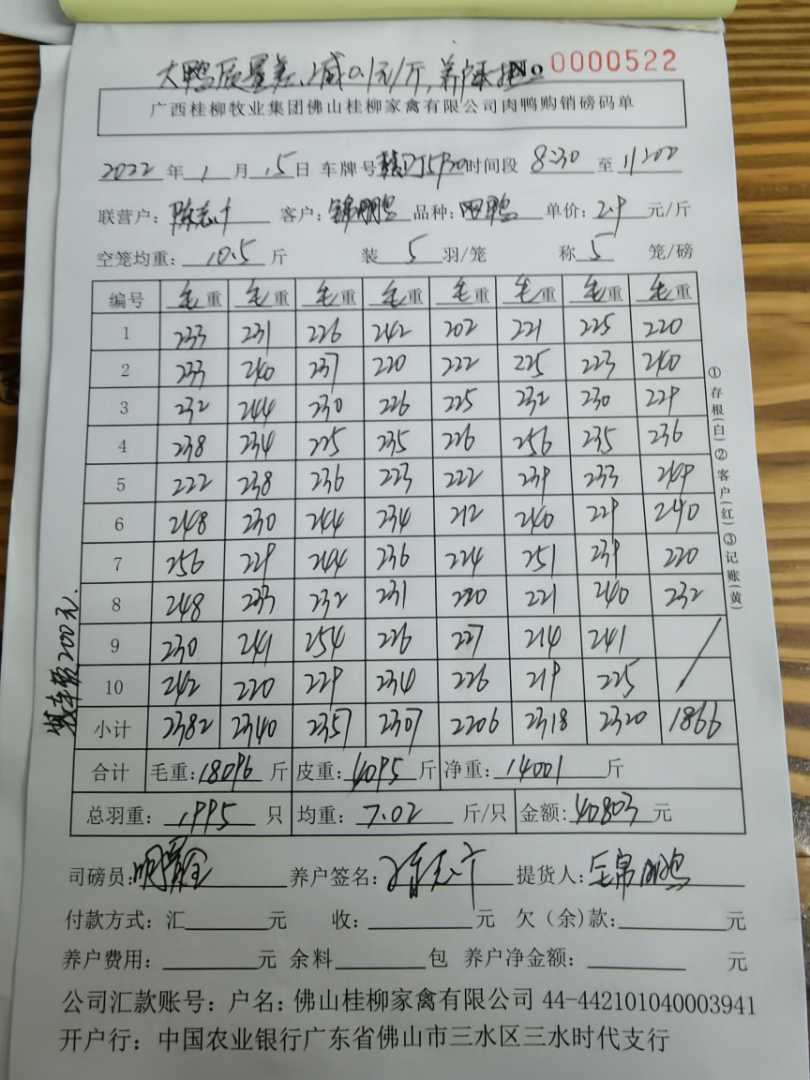 大鸭质量差,减0.1元/斤,养户承担
No 0000522
广西桂柳牧业集团佛山桂柳家禽有限公司肉鸭购销磅码单
2022年1月15日 车牌号 时间段 8:30 至 11:00
联营户: 客户:锦鹏鸭 品种:四鸭 单价:2.9元/斤
空笼均重:10.5斤 装5羽/笼 称5笼/磅
编号 毛重 毛重 毛重 毛重 毛重 毛重 毛重 毛重
1 233 231 226 242 202 221 225 220
2 233 240 237 220 222 225 223 240
3 232 244 230 226 225 232 230 229
4 238 234 225 235 226 256 235 236
5 222 238 236 223 222 239 233 249
6 248 230 244 234 212 240 229 240
7 256 229 244 236 224 251 239 220
8 248 233 232 231 220 221 240 232
9 230 241 254 226 227 214 241
10 242 220 229 234 226 219 225
小计 2382 2340 2357 2307 2206 2318 2320 1866
合计 毛重:18096斤 皮重:4095斤 净重:14001斤
总羽重:1995只 均重:7.02斤/只 金额:40803元
司磅员: 养户签名: 提货人:锦鹏鸭
付款方式:汇 元 收: 元 欠(余)款: 元
养户费用: 元 余料 包 养户净金额: 元
公司汇款账号:户名:佛山桂柳家禽有限公司 44-442101040003941
开户行:中国农业银行广东省佛山市三水区三水时代支行
①存根(白)②客户(红)③记账(黄)
装车费200元.